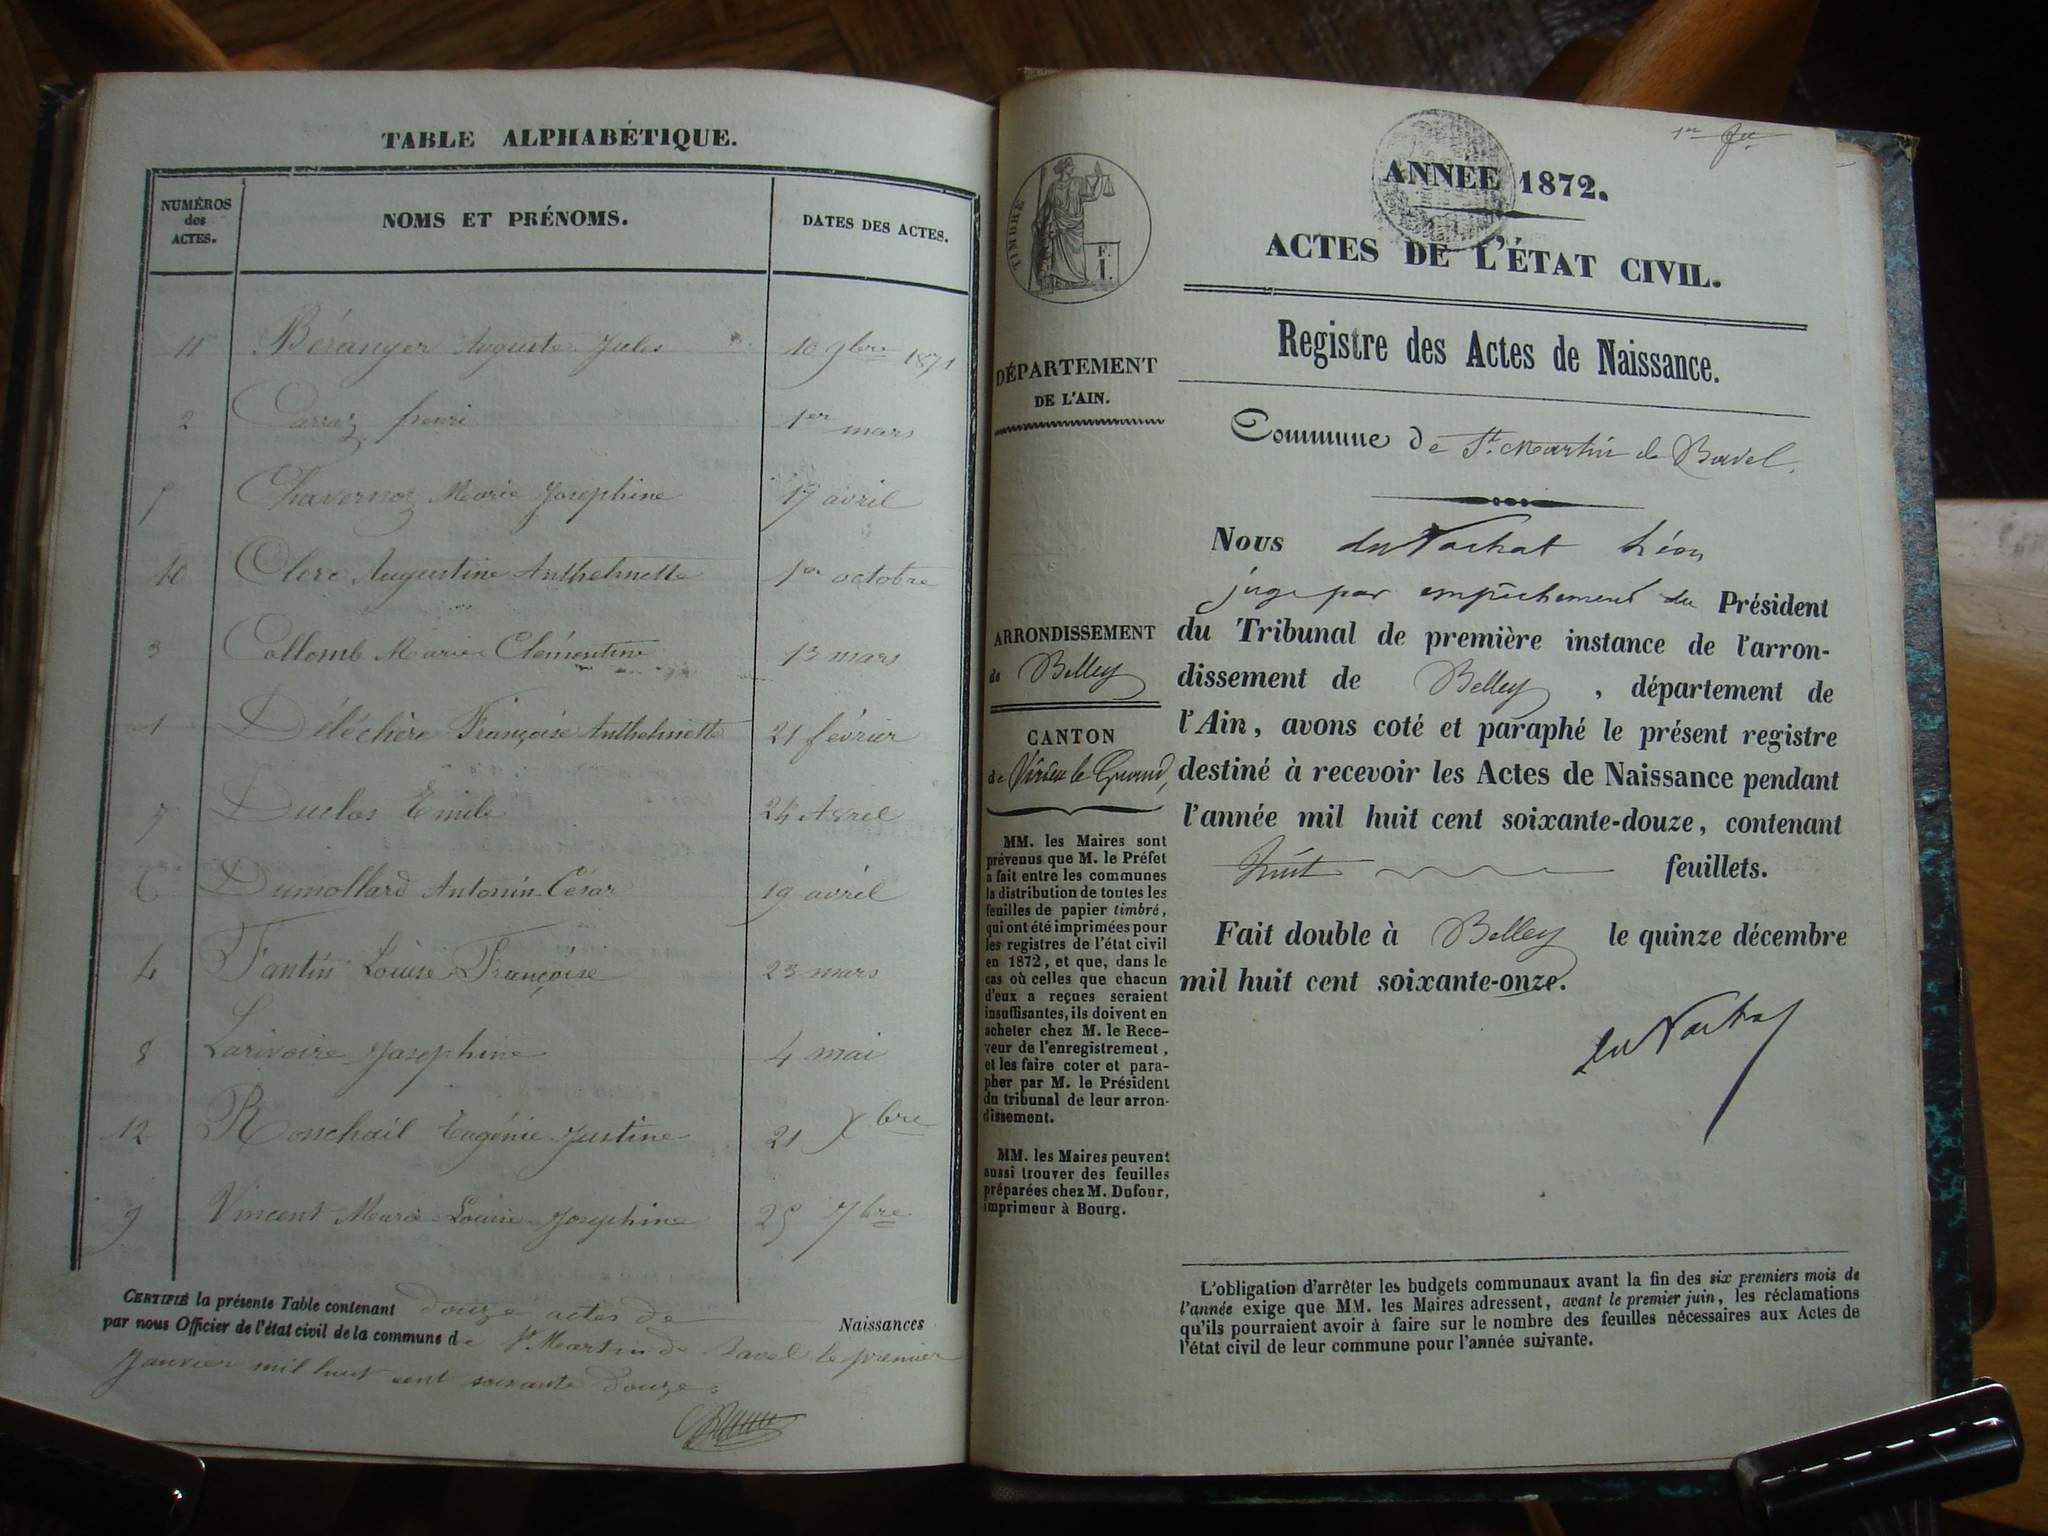 TABLE ALPHABÉTIQUE.
NUMÉROS des ACTES. NOMS ET PRÉNOMS. DATES DES ACTES.
11 Béranger Auguste Jules 10 9bre 1871
2 Carraz henri 1er mars
5 Chavernoz Marie Josephine 17 avril
10 Clerc Augustine Anthelmette 1er octobre
3 Collomb Marie Clémentine 13 mars
1 Déléchère Françoise Anthelmette 21 février
7 Duclos Emile 24 Avril
6 Dumollard Antonin César 19 avril
4 Fantin Louise Françoise 23 mars
8 Larivoire Josephine 4 mai
12 Rosschail Eugénie Justine 21 Xbre
9 Vincent Marie Louise Josephine 25 7bre
CERTIFIÉ la présente Table contenant douze actes de Naissances
par nous Officier de l'état civil de la commune de St Martin de Bavel le premier
Janvier mil huit cent soixante douze.
TIMBRE
F.
I.
DÉPARTEMENT
DE L'AIN.
ARRONDISSEMENT
de Belley
CANTON
de Virieu le Grand,
MM. les Maires sont
prévenus que M. le Préfet
a fait entre les communes
la distribution de toutes les
feuilles de papier timbré,
qui ont été imprimées pour
les registres de l'état civil
en 1872, et que, dans le
cas où celles que chacun
d'eux a reçues seraient
insuffisantes, ils doivent en
acheter chez M. le Rece-
veur de l'enregistrement,
et les faire coter et para-
pher par M. le Président
du tribunal de leur arron-
dissement.
MM. les Maires peuvent
aussi trouver des feuilles
préparées chez M. Dufour,
imprimeur à Bourg.
ANNÉE 1872.
ACTES DE L'ÉTAT CIVIL.
Registre des Actes de Naissance.
Commune de St. Martin de Bavel.
Nous du Vachat Léon
juge par empêchement du Président
du Tribunal de première instance de l'arron-
dissement de Belley, département de
l'Ain, avons coté et paraphé le présent registre
destiné à recevoir les Actes de Naissance pendant
l'année mil huit cent soixante-douze, contenant
huit feuillets.
Fait double à Belley le quinze décembre
mil huit cent soixante-onze.
du Vachat
L'obligation d'arrêter les budgets communaux avant la fin des six premiers mois de
l'année exige que MM. les Maires adressent, avant le premier juin, les réclamations
qu'ils pourraient avoir à faire sur le nombre des feuilles nécessaires aux Actes de
l'état civil de leur commune pour l'année suivante.